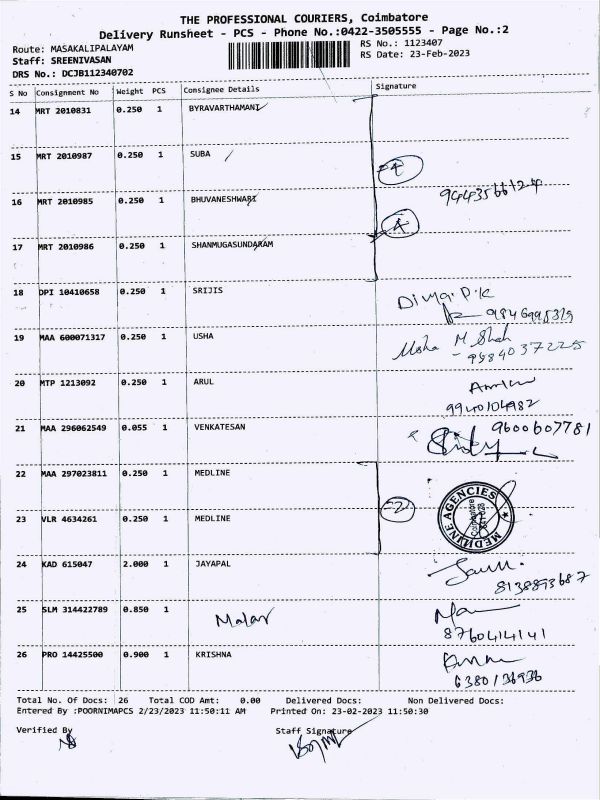 THE PROFESSIONAL COURIERS, Coimbatore
Delivery Runsheet - PCS - Phone No.:0422-3505555 - Page No.:2
Route: MASAKALIPALAYAM RS No.: 1123407
Staff: SREENIVASAN RS Date: 23-Feb-2023
DRS No.: DCJB112340702
S No Consignment No Weight PCS Consignee Details Signature
14 MRT 2010831 0.250 1 BYRAVARTHAMANI
15 MRT 2010987 0.250 1 SUBA
4
16 MRT 2010985 0.250 1 BHUVANESHWARI
17 MRT 2010986 0.250 1 SHANMUGASUNDARAM
18 DPI 10410658 0.250 1 SRIJIS
Divya. P.K
19 MAA 600071317 0.250 1 USHA Usha M Shah
20 MTP 1213092 0.250 1 ARUL
9940104982
21 MAA 296062549 0.055 1 VENKATESAN 9600607781
22 MAA 297023811 0.250 1 MEDLINE
2
MEDHINE AGENCIES
23 VLR 4634261 0.250 1 MEDLINE
24 KAD 615047 2.000 1 JAYAPAL
8138893687
25 SLM 314422789 0.850 1 Malar
8760414141
26 PRO 14425500 0.900 1 KRISHNA
6380136936
Total No. Of Docs: 26 Total COD Amt: 0.00 Delivered Docs: Non Delivered Docs:
Entered By :POORNIMAPCS 2/23/2023 11:50:11 AM Printed On: 23-02-2023 11:50:30
Verified By Staff Signature